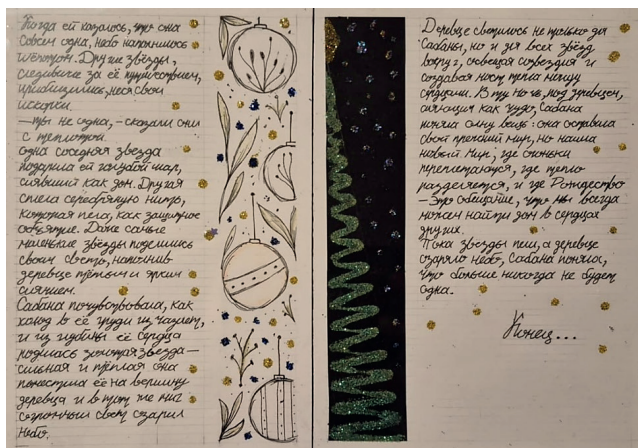 Когда ей казалось, что она
совсем одна, небо наполнилось
шёпотом. Другие звёзды,
следившие за её путешествием,
приблизились, неся свои
искорки.
— ты не одна, - сказали они
с теплотой.
одна соседняя звезда
подарила ей голубой шар,
сиявший как дом. Другая
сплела серебряную нить,
которая пела, как защитное
объятие. Даже самые
маленькие звёзды поделились
своим светом, наполнив
деревце тёплым и ярким
сиянием.
Сабана почувствовала, как
холод в её груди исчезает,
и из глубины её сердца
родилась золотая звезда —
сильная и тёплая она
поместила её на вершину
деревца и в тот же миг
огромный свет озарил
небо.
Деревце светилось не только для
Сабаны, но и для всех звёзд
вокруг, освещая созвездия и
создавая мост тепла между
сердцами. В ту ночь, под деревцем,
сияющим как чудо, Сабана
поняла одну вещь: она оставила
свой прежний мир, но нашла
новый мир, где огоньки
переплетаются, где тепло
разделяется, и где Рождество
— Это обещание, что мы всегда
можем найти дом в сердцах
других.
Пока звезды пели, а деревце
озаряло небо, Сабана поняла,
что больше никогда не будет
одна.
Конец...